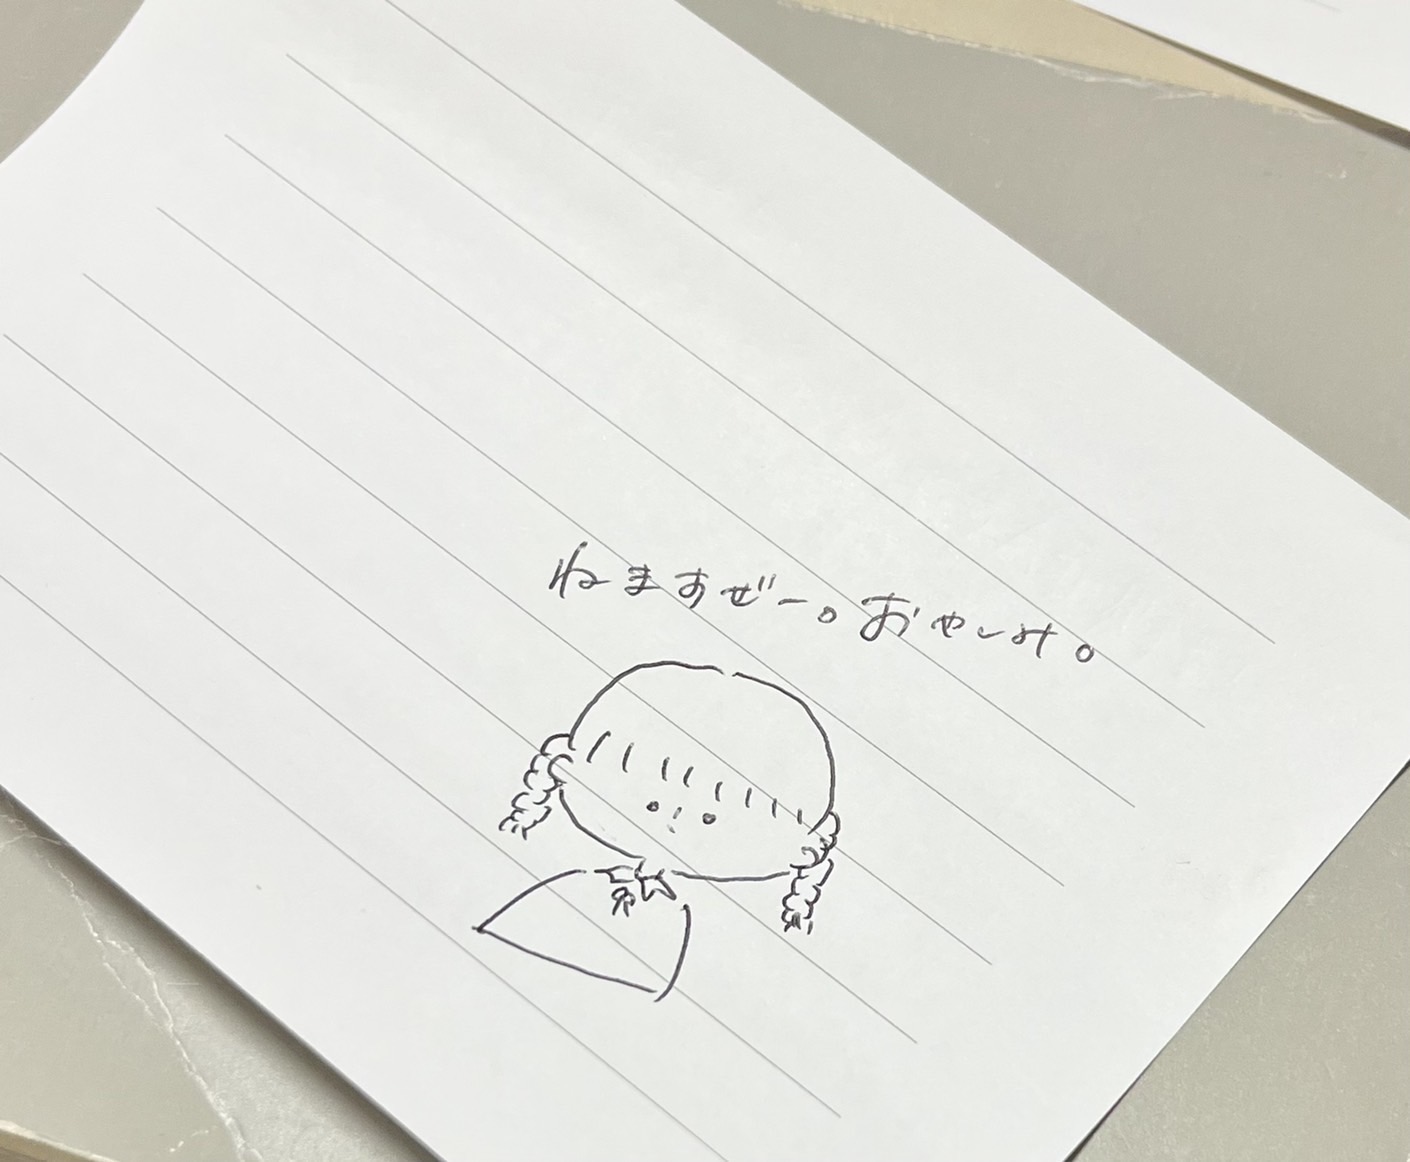 ねますぜー。おやしみ。